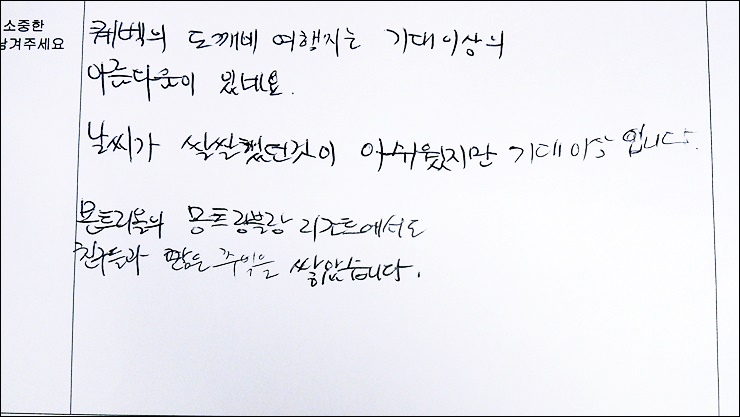 소중한
남겨주세요
퀘벡의 도깨비 여행지는 기대이상의
아름다움이 있네요.
날씨가 쌀쌀했던것이 아쉬웠지만 기대이상 입니다.
몬트리올의 몽트랑블랑 리조트에서도
친구들과 많은 추억을 쌓았습니다.